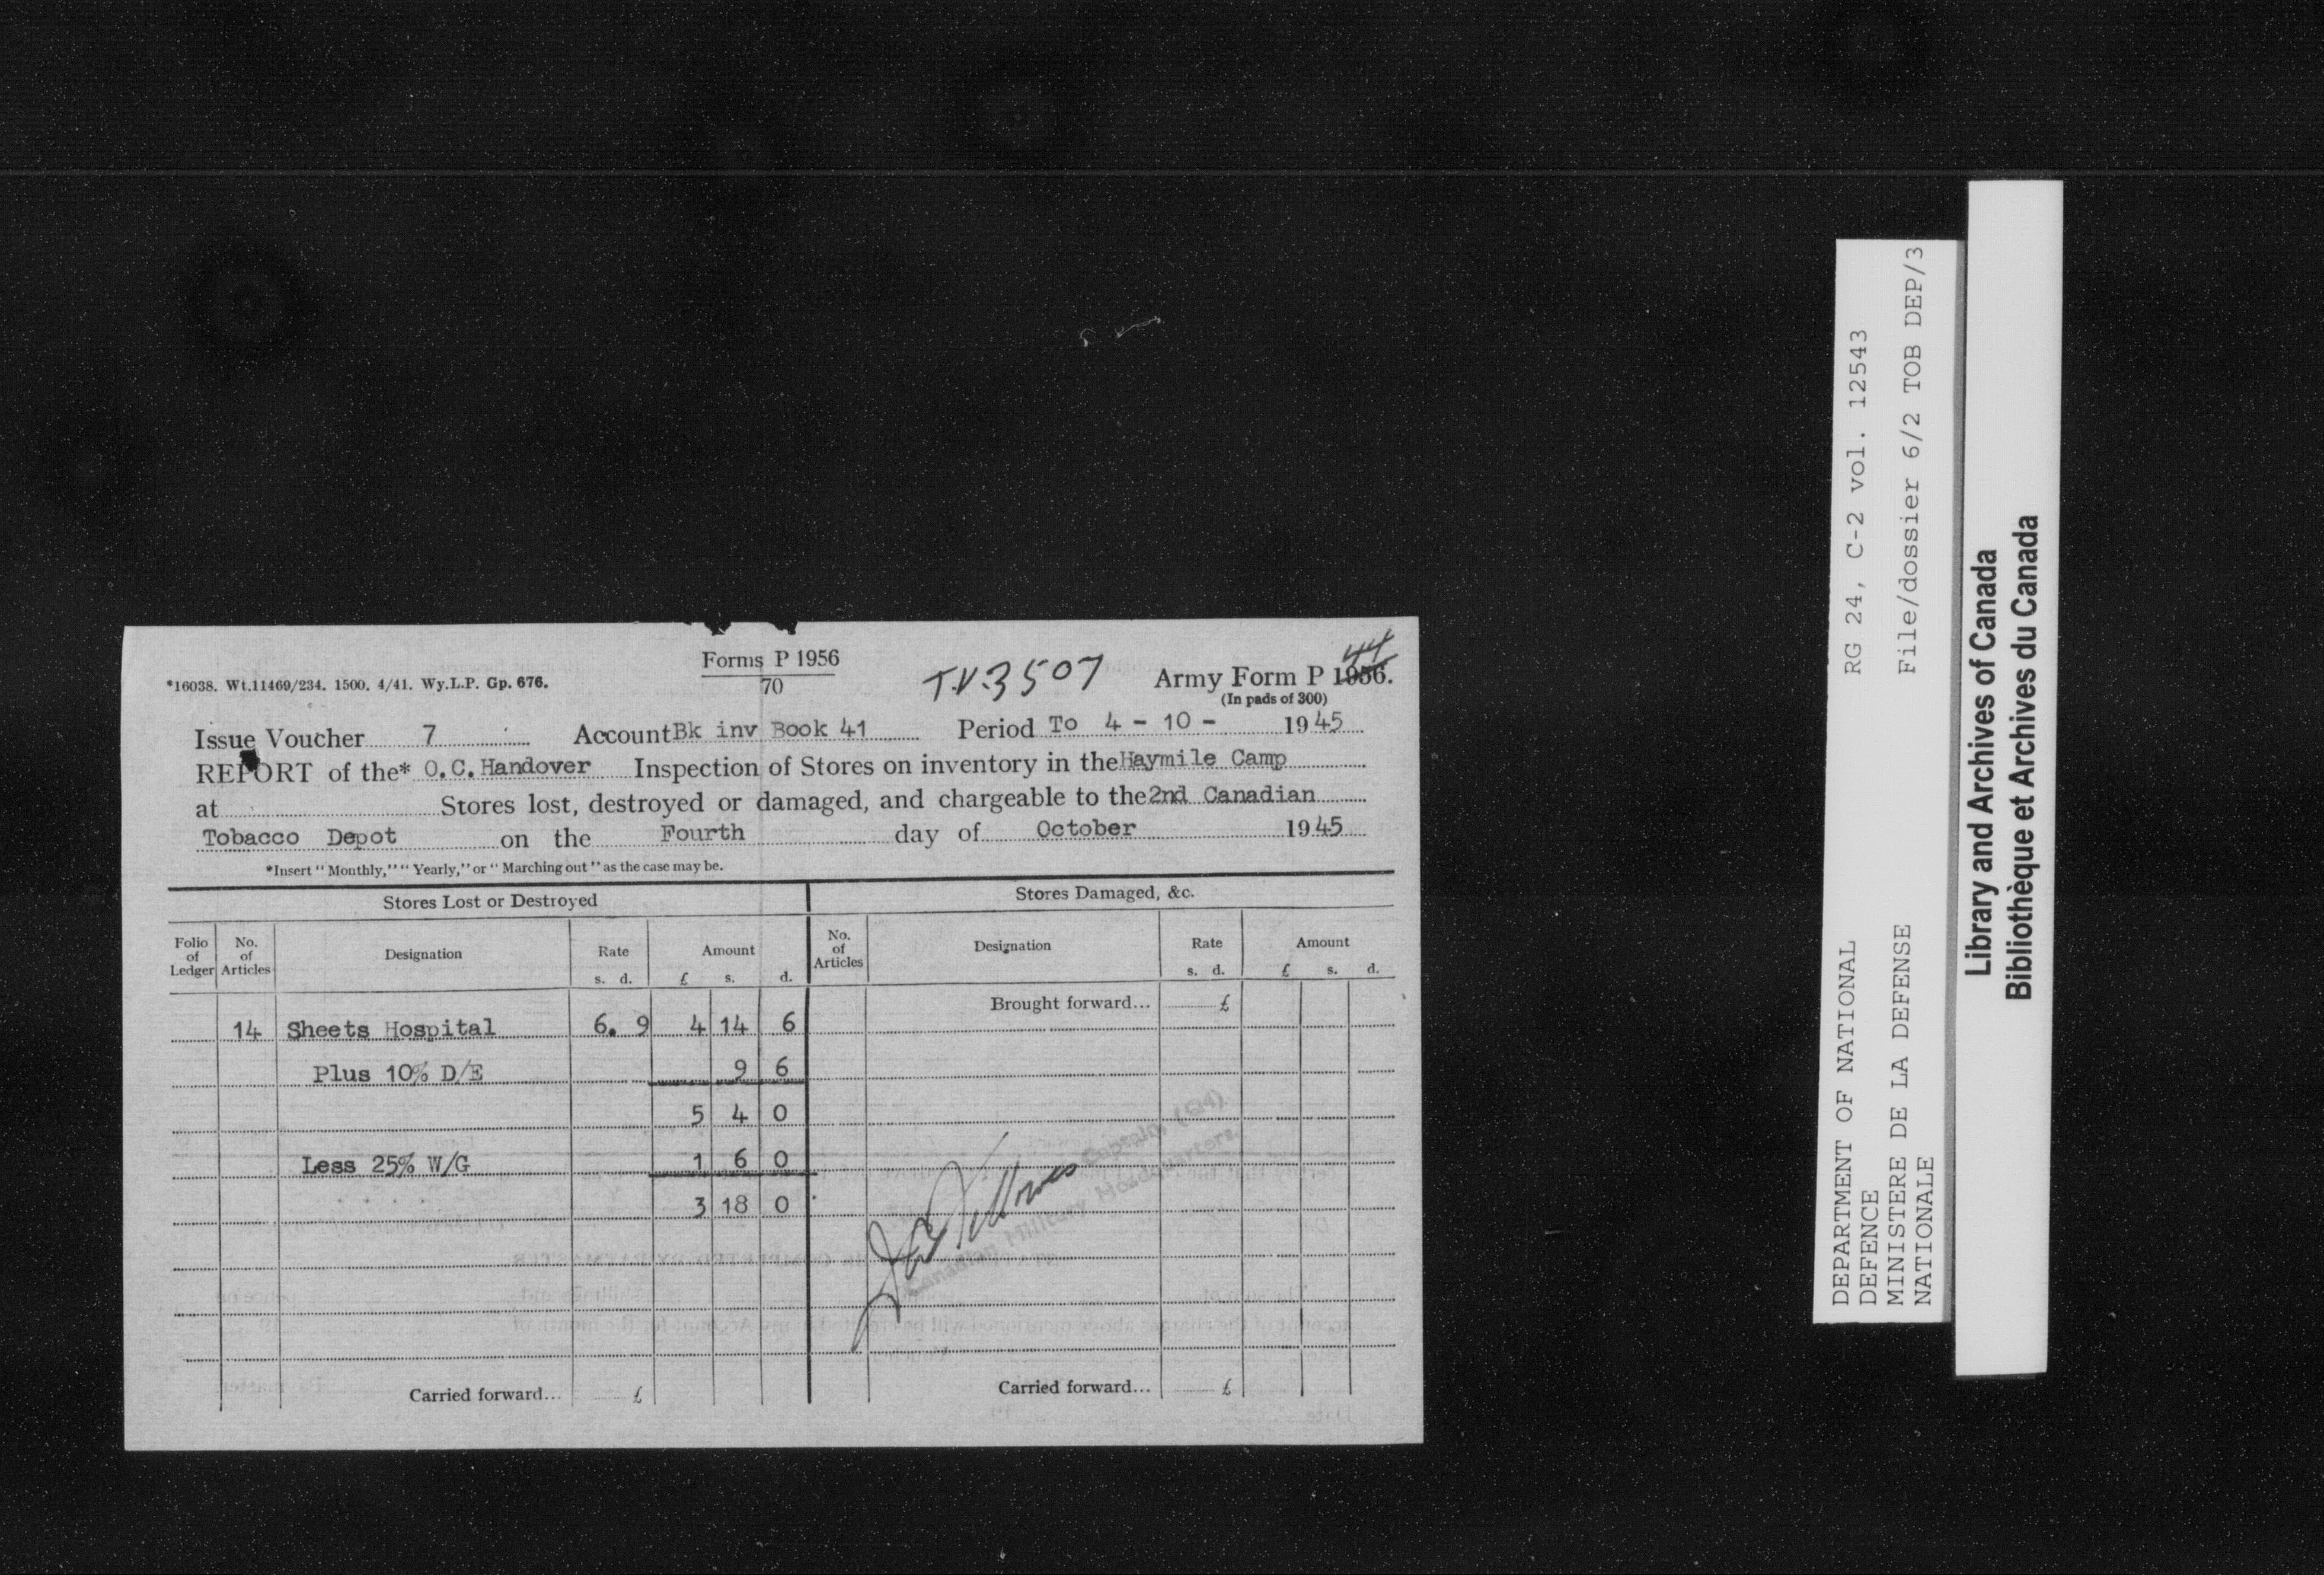 Forms P 1956
70
*16038. Wt.11469/234. 1500. 4/41. Wy.L.P. Gp. 676.
T.V.3507
44
Army Form P 1956.
(In pads of 300)
Issue Voucher 7 Account Bk inv Book 41 Period To 4 - 10 - 1945
REPORT of the* O.C. Handover Inspection of Stores on inventory in the Haymile Camp
at Stores lost, destroyed or damaged, and chargeable to the 2nd Canadian
Tobacco Depot on the Fourth day of October 1945
*Insert "Monthly," "Yearly," or "Marching out" as the case may be.
Stores Lost or Destroyed Stores Damaged, &c.
Folio of Ledger No. of Articles Designation Rate s. d. Amount £ s. d. No. of Articles Designation Rate s. d. Amount £ s. d.
Brought forward... £
14 Sheets Hospital 6. 9 4 14 6
Plus 10% D/E 9 6
5 4 0
Less 25% W/G 1 6 0
3 18 0
Captain
Canadian Military Headquarters.
Carried forward... £ Carried forward... £
RG 24, C-2 vol. 12543
File/dossier 6/2 TOB DEP/3
DEPARTMENT OF NATIONAL
DEFENCE
MINISTERE DE LA DEFENSE
NATIONALE
Library and Archives of Canada
Bibliothèque et Archives du Canada